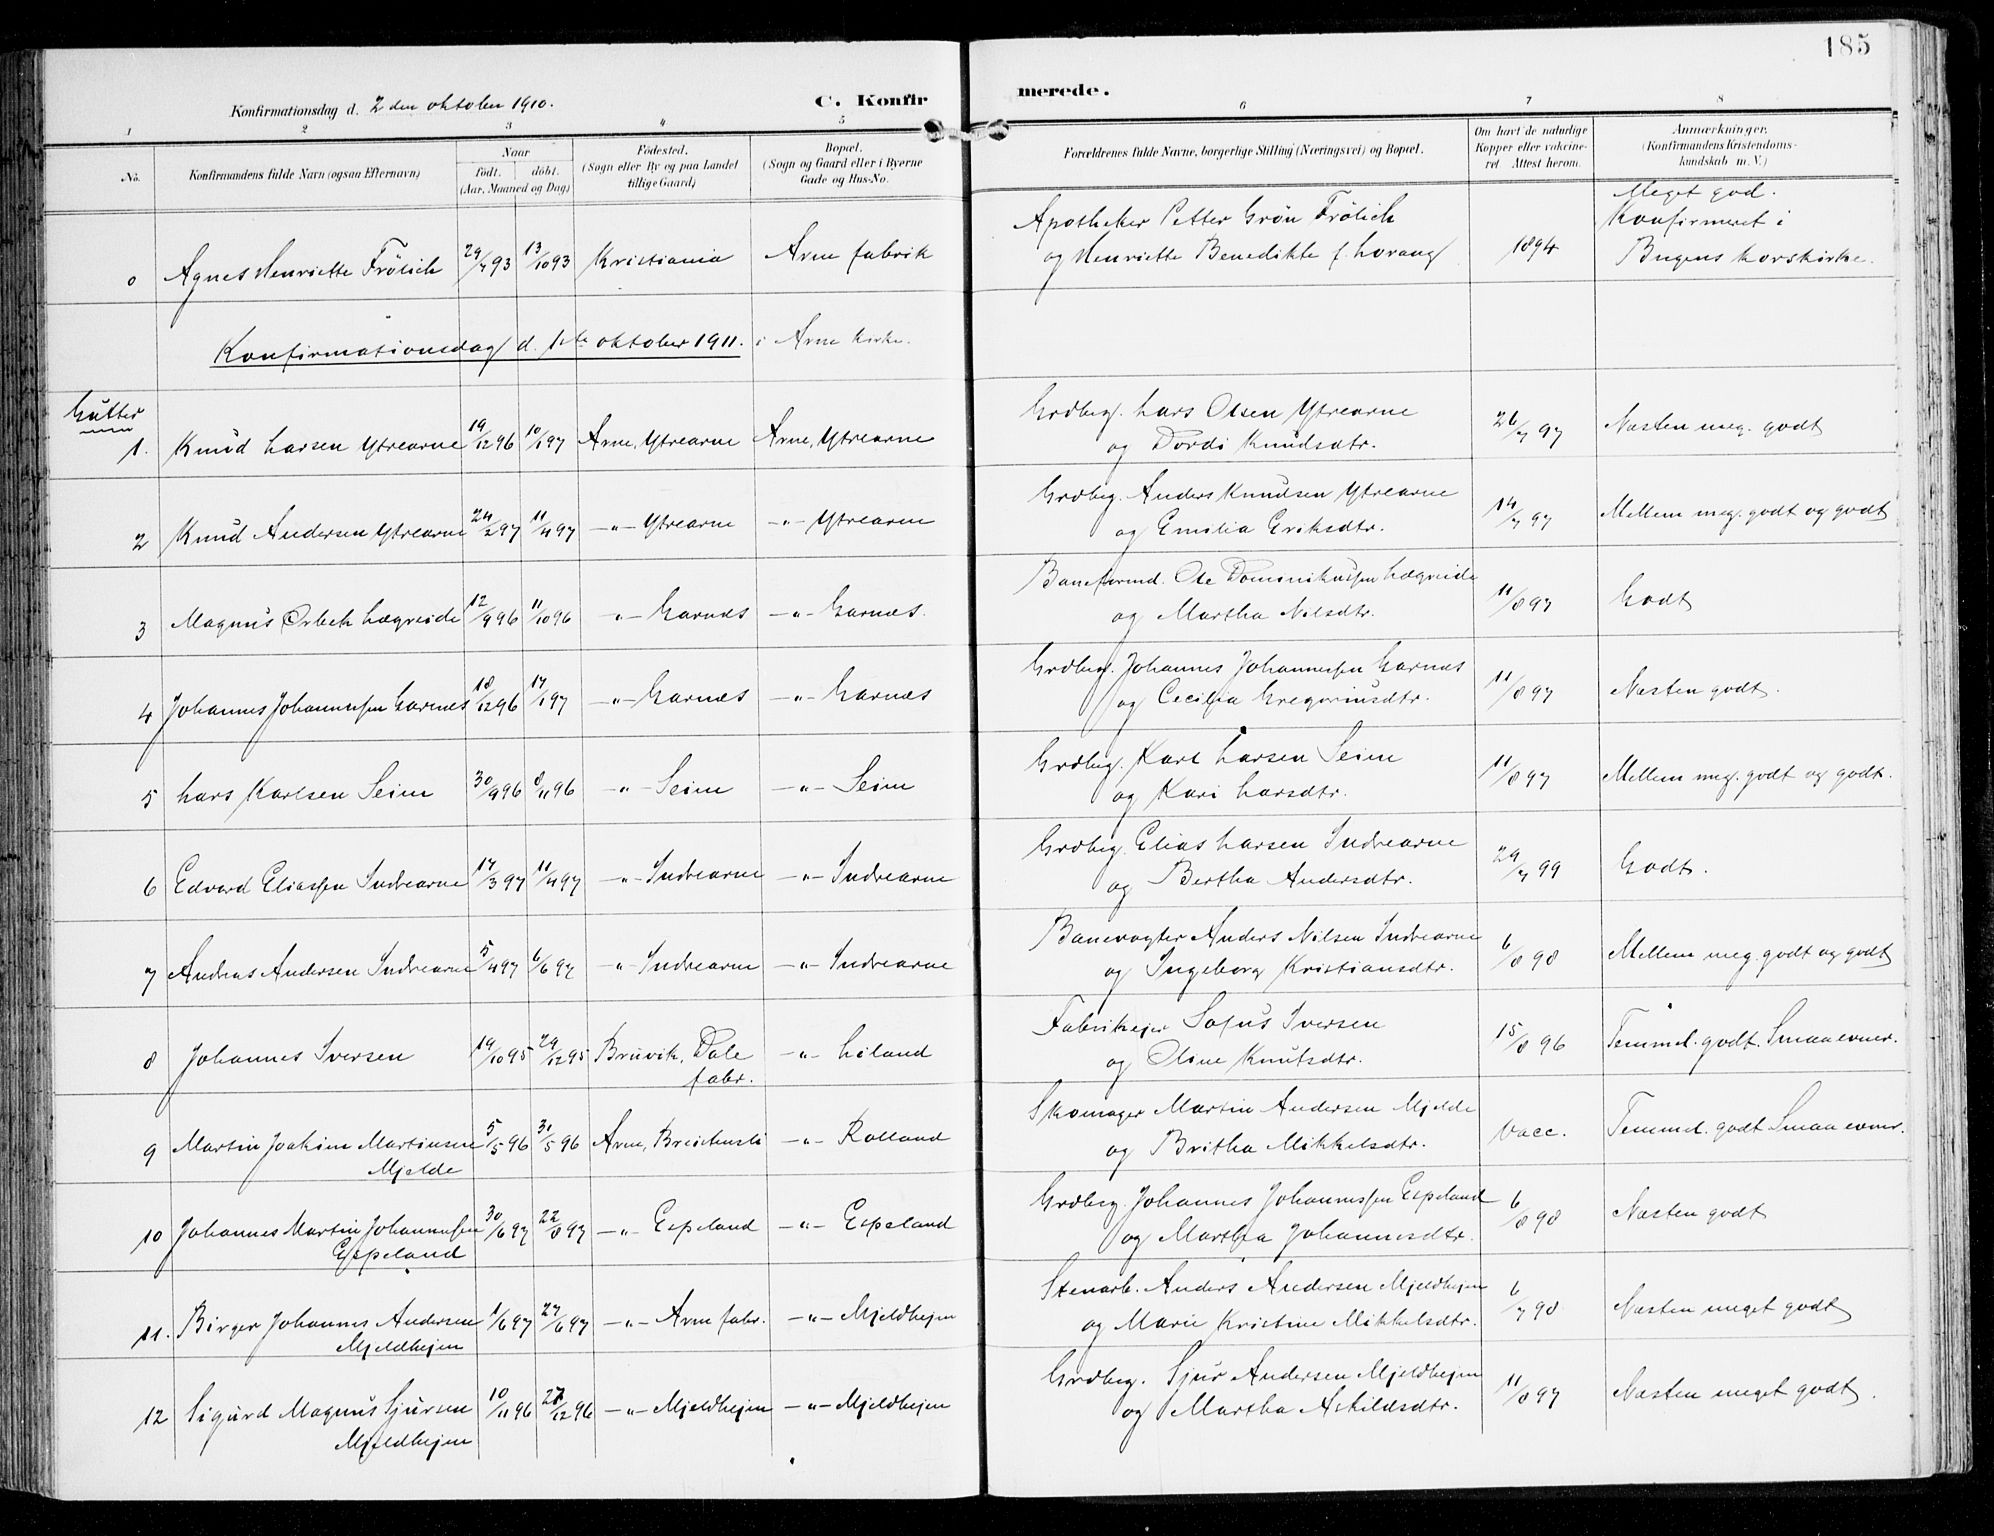 185
Konfirmationsdag d. 2 den oktober 1910.
C. Konfirmerede.
1 2 3 4 5 6 7 8
No.
Konfirmandens fulde Navn (ogsaa Efternavn)
Naar
født. døbt.
(Aar, Maaned og Dag)
Fødested.
(Sogn eller By og paa Landet
tillige Gaard)
Bopæl.
(Sogn og Gaard eller i Byerne
Gade og Hus-No.
Forældrenes fulde Navne, borgerlige Stilling (Næringsvei) og Bopæl.
Om havt de naturlige
Kopper eller vaccine-
ret Attest herom.
Anmærkninger.
(Konfirmandens Kristendoms-
kundskab m. V.)
0 Agnes Henriette Frölich 29/7 93 13/10 93 Kristiania Arne fabrik
Apotheker Petter Grön Frölich
og Henriette Benedikte f. Lorang 1894
Meget god.
Konfirmeret i
Bergens korskirke.
Konfirmationsdag d. 1ste oktober 1911. i Arne kirke.
Gutter
1. Knud Larsen Ytrearne 19/12 96 10/1 97 Arne, Ytrearne Arne, Ytrearne
Grdbrg. Lars Olsen Ytrearne
og Dordi Knudsdtr. 26/7 97 Næsten meg. godt
2 Knud Andersen Ytrearne 24/2 97 11/4 97 -"- Ytrearne -"- Ytrearne
Grdbrg. Anders Knudsen Ytrearne
og Emilia Eriksdtr. 14/7 97 Mellem meg. godt og godt
3 Magnus Orbek Lægreide 12/9 96 11/10 96 -"- Garnæs -"- Garnæs.
Baneformd. Ole Dominikussen Lægreide
og Martha Nilsdtr. 11/8 97 Godt
4 Johannes Johannessen Garnæs 18/12 96 17/1 97 -"- Garnæs -"- Garnæs
Grdbrg. Johannes Johannessen Garnæs
og Cecilia Gregoriusdtr. 11/8 97 Næsten godt.
5 Lars Karlsen Seim 30/9 96 8/11 96 -"- Seim -"- Seim
Grdbrg. Karl Larsen Seim
og Kari Larsdtr. 11/8 97 Mellem meg. godt og godt.
6 Edvard Eliassen Indrearne 17/3 97 11/4 97 -"- Indrearne -"- Indrearne
Grdbrg. Elias Larsen Indrearne
og Bertha Andersdtr. 29/7 99 Godt.
7 Andreas Andersen Indrearne 5/4 97 6/6 97 -"- Indrearne -"- Indrearne
Banevogter Anders Nilsen Indrearne
og Ingeborg Kristiansdtr. 6/8 98 Mellem meg. godt og godt
8 Johannes Iversen 19/10 95 29/12 95 Bruvik, Dale -"- Liland
fabr.
Fabrikejer Sofus Iversen
og Oline Knutsdtr. 15/8 96 Temmel. godt. Smaa evner.
9 Martin Joakim Martinsen 5/5 96 31/5 96 Arne, -"- Rolland
Mjelde
Skomager Martin Andersen Mjelde
og Britha Mikkelsdtr. Vacc. Temmel. godt Smaa evner.
10 Johannes Martin Johannessen 30/6 97 22/8 97 -"- Espeland -"- Espeland
Espeland
Grdbrg. Johannes Johannessen Espeland
og Martha Johannesdtr. 6/8 98 Næsten godt
11. Birger Johannes Andersen 1/6 97 27/6 97 -"- Arne fabr. -"- Mjeldhejen
Mjeldhejen
Stenarb. Anders Andersen Mjeldhejen
og Marie Kristine Mikkelsdtr. 6/7 98 Næsten meget godt
12 Sigurd Magnus Sjursen 10/11 96 27/12 96 -"- Mjeldhejen -"- Mjeldhejen
Mjeldhejen
Grdbrg. Sjur Andersen Mjeldhejen
og Martha Askildsdtr. 11/8 97 Næsten meget godt.